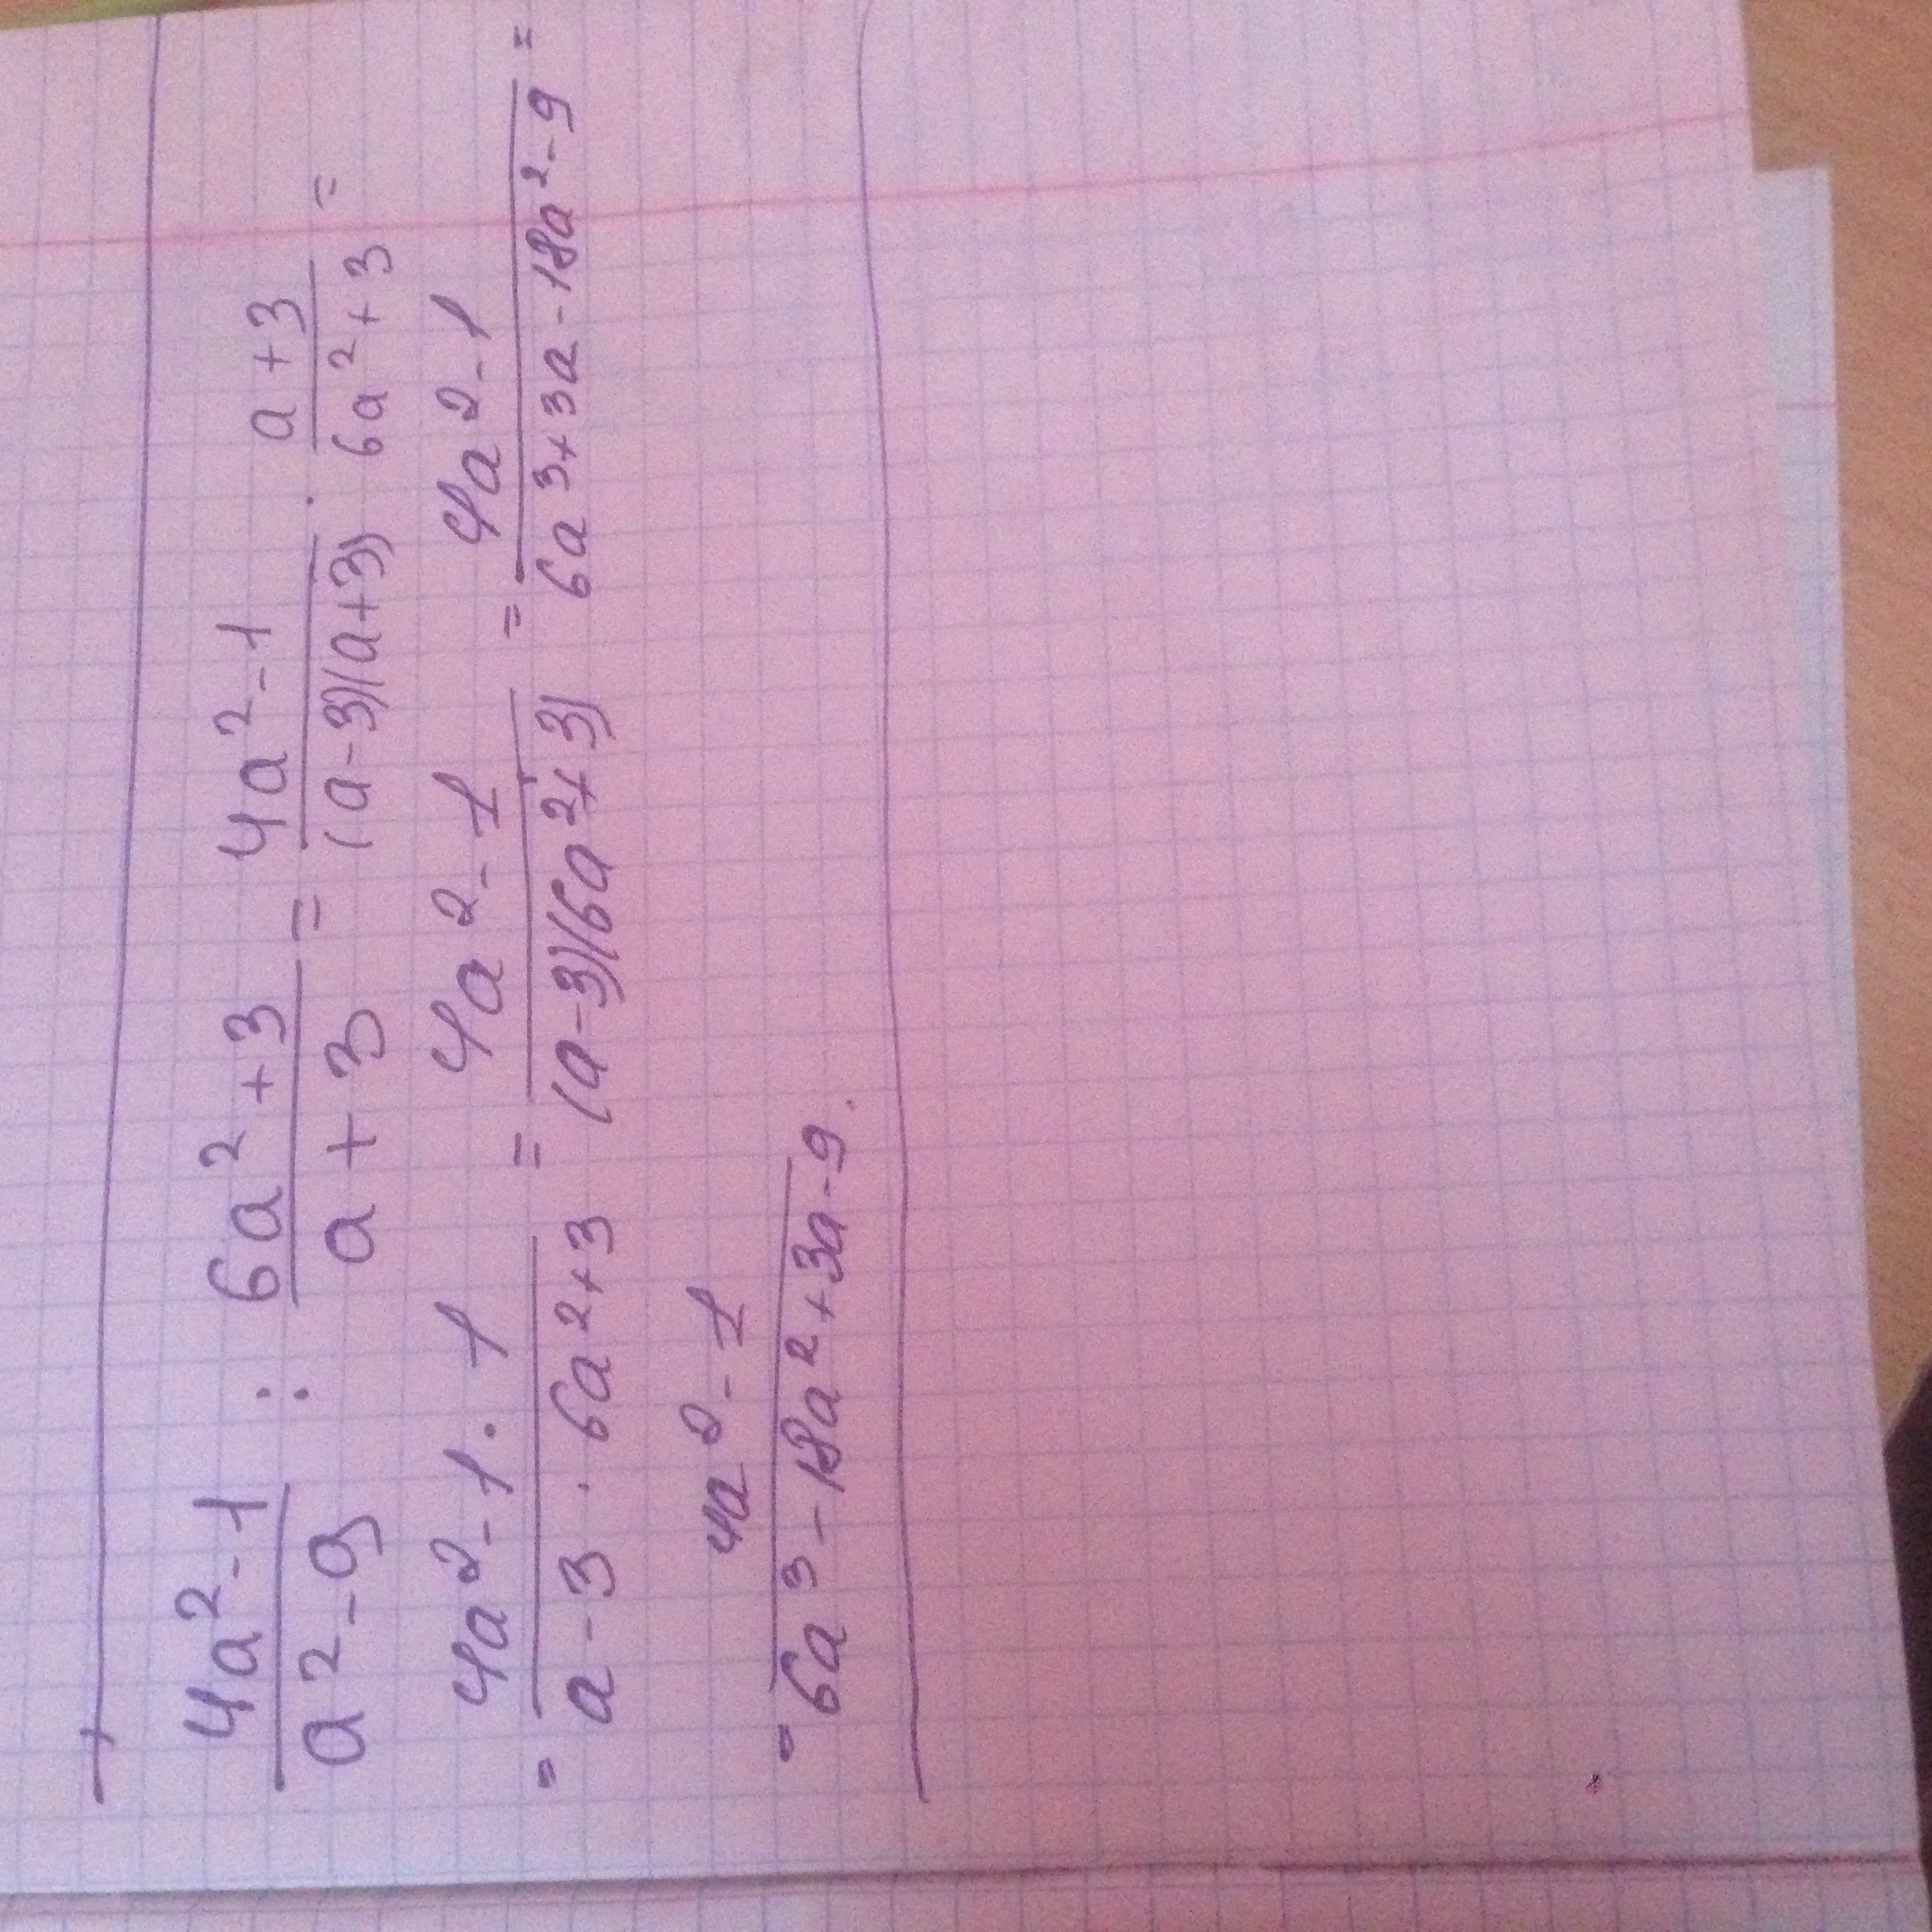 (4a²-1)/(a²-9) : (6a²+3)/(a+3) = (4a²-1)/((a-3)(a+3)) · (a+3)/(6a²+3) =
= (4a²-1·1)/(a-3·6a²+3) = (4a²-1)/((a-3)(6a²+3)) = (4a²-1)/(6a³+3a-18a²-9) =
= (4a²-1)/(6a³-18a²+3a-9).